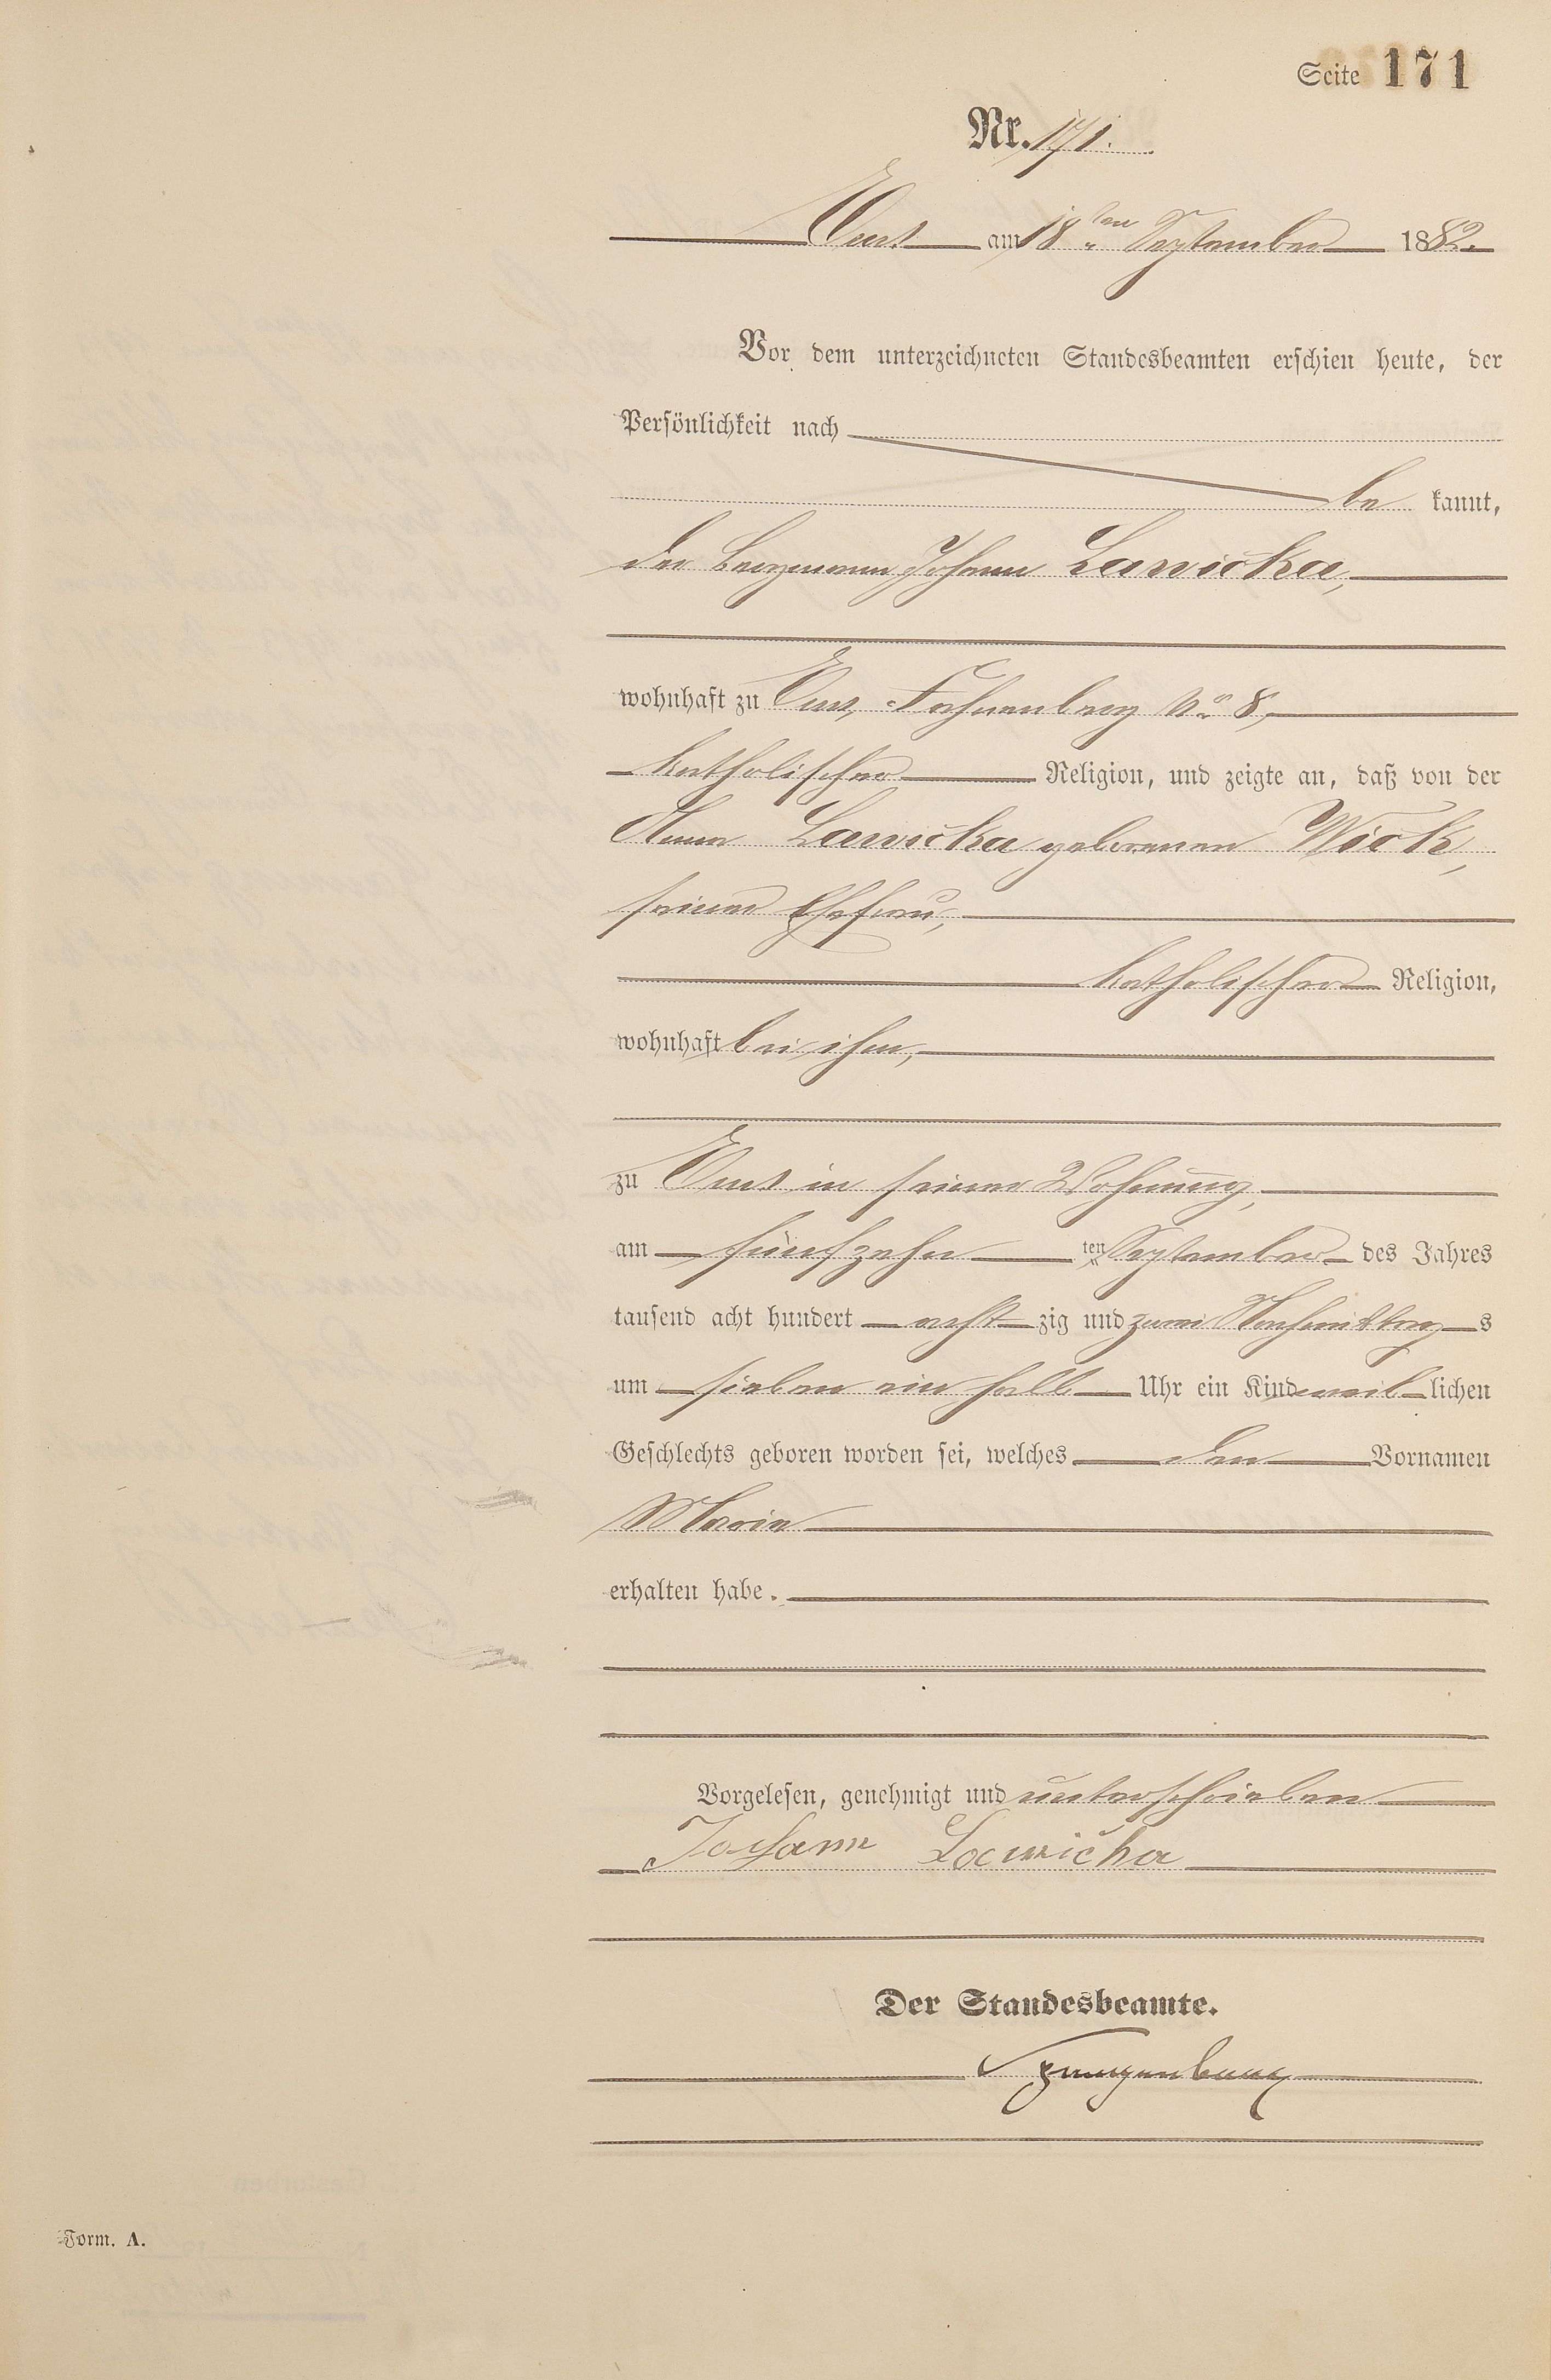 Seite 171
Nr. 171.
Ems am 18ten September 1882.
Vor dem unterzeichneten Standesbeamten erschien heute, der
Persönlichkeit nach
be kannt,
der Bergmann Johann Lawicka,
wohnhaft zu Ems, No 8,
katholischer Religion, und zeigte an, daß von der
Anna Lawicka geborenen Wick,
seiner Ehefrau,
katholischer Religion,
wohnhaft bei ihm,
zu Ems in seiner Wohnung,
am fünfzehn ten September des Jahres
tausend acht hundert acht zig und zwei Nachmittag s
um sieben ein halb Uhr ein Kind weib lichen
Geschlechts geboren worden sei, welches den Vornamen
Maria
erhalten habe.
Vorgelesen, genehmigt und unterschrieben
Johann Lawička
Der Standesbeamte.
Form. A.